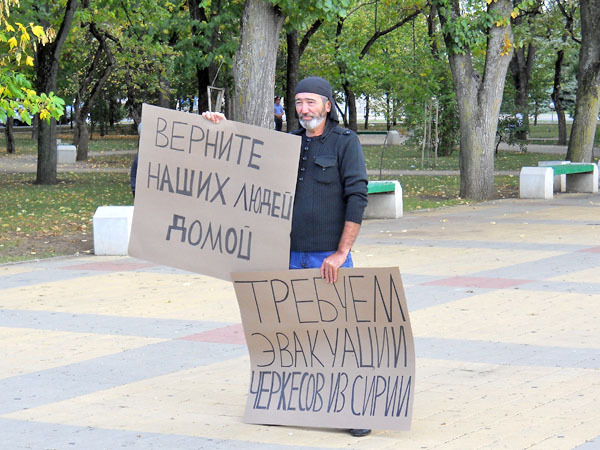 ВЕРНИТЕ
НАШИХ ЛЮДЕЙ
ДОМОЙ
ТРЕБУЕМ
ЭВАКУАЦИИ
ЧЕРКЕСОВ ИЗ СИРИИ